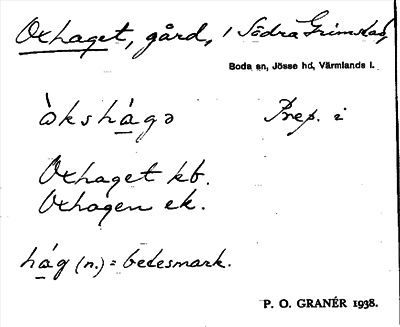 Oxhaget, gård, i Södra Grimstad,
Boda sn, Jösse hd, Värmlands l.
òkshágə Prep. i
Oxhaget kb.
Oxhagen ek.
hág (n.) = betesmark.
P. O. GRANÉR 1938.